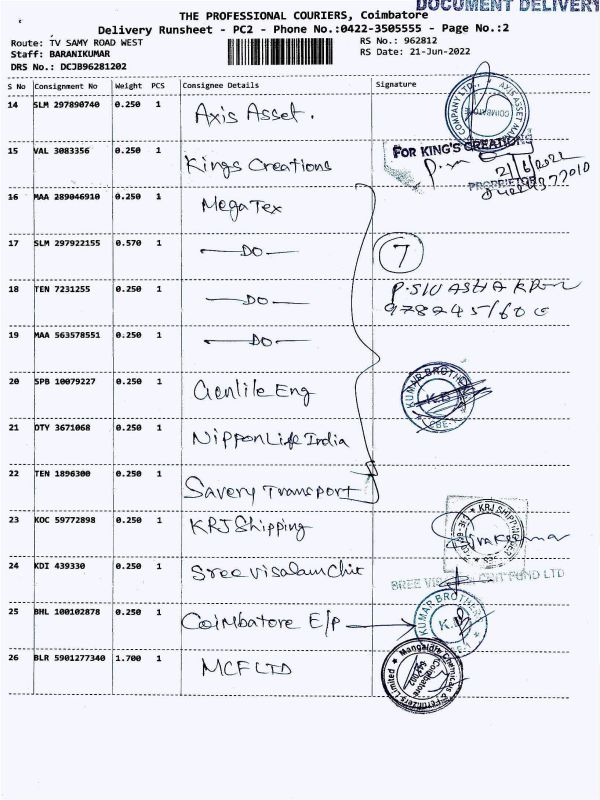 DOCUMENT DELIVERY
THE PROFESSIONAL COURIERS, Coimbatore
Delivery Runsheet - PC2 - Phone No.:0422-3505555 - Page No.:2
Route: TV SAMY ROAD WEST
RS No.: 962812
Staff: BARANIKUMAR
RS Date: 21-Jun-2022
DRS No.: DCJB96281202
S No Consignment No Weight PCS Consignee Details Signature
14 SLM 297890740 0.250 1 Axis Asset.
COMPANY LTD., AXIS ASSET COIMBATORE
15 VAL 3083356 0.250 1 Kings Creations
FOR KING'S CREATIONS
21/6/2022
PROPRIETOR
16 MAA 289046910 0.250 1 MegaTex
17 SLM 297922155 0.570 1 —DO— 7
18 TEN 7231255 0.250 1 —DO—
19 MAA 563578551 0.250 1 —DO—
20 SPB 10079227 0.250 1
KUMAR BROTHE K.B CBE-1
21 OTY 3671068 0.250 1 NipponLife India
22 TEN 1896300 0.250 1 Savery Transport
23 KOC 59772898 0.250 1 KRJ Shipping
KRJ SHIPPING
24 KDI 439330 0.250 1 Sree Visalam Chit
SREE VISALAM CHIT FUND LTD
25 BHL 100102878 0.250 1 Coimbatore E/P
KUMAR BROTHER K.B
26 BLR 5901277340 1.700 1 MCF LTD
Mangalore Chemicals & Fertilizers Limited Coimbatore